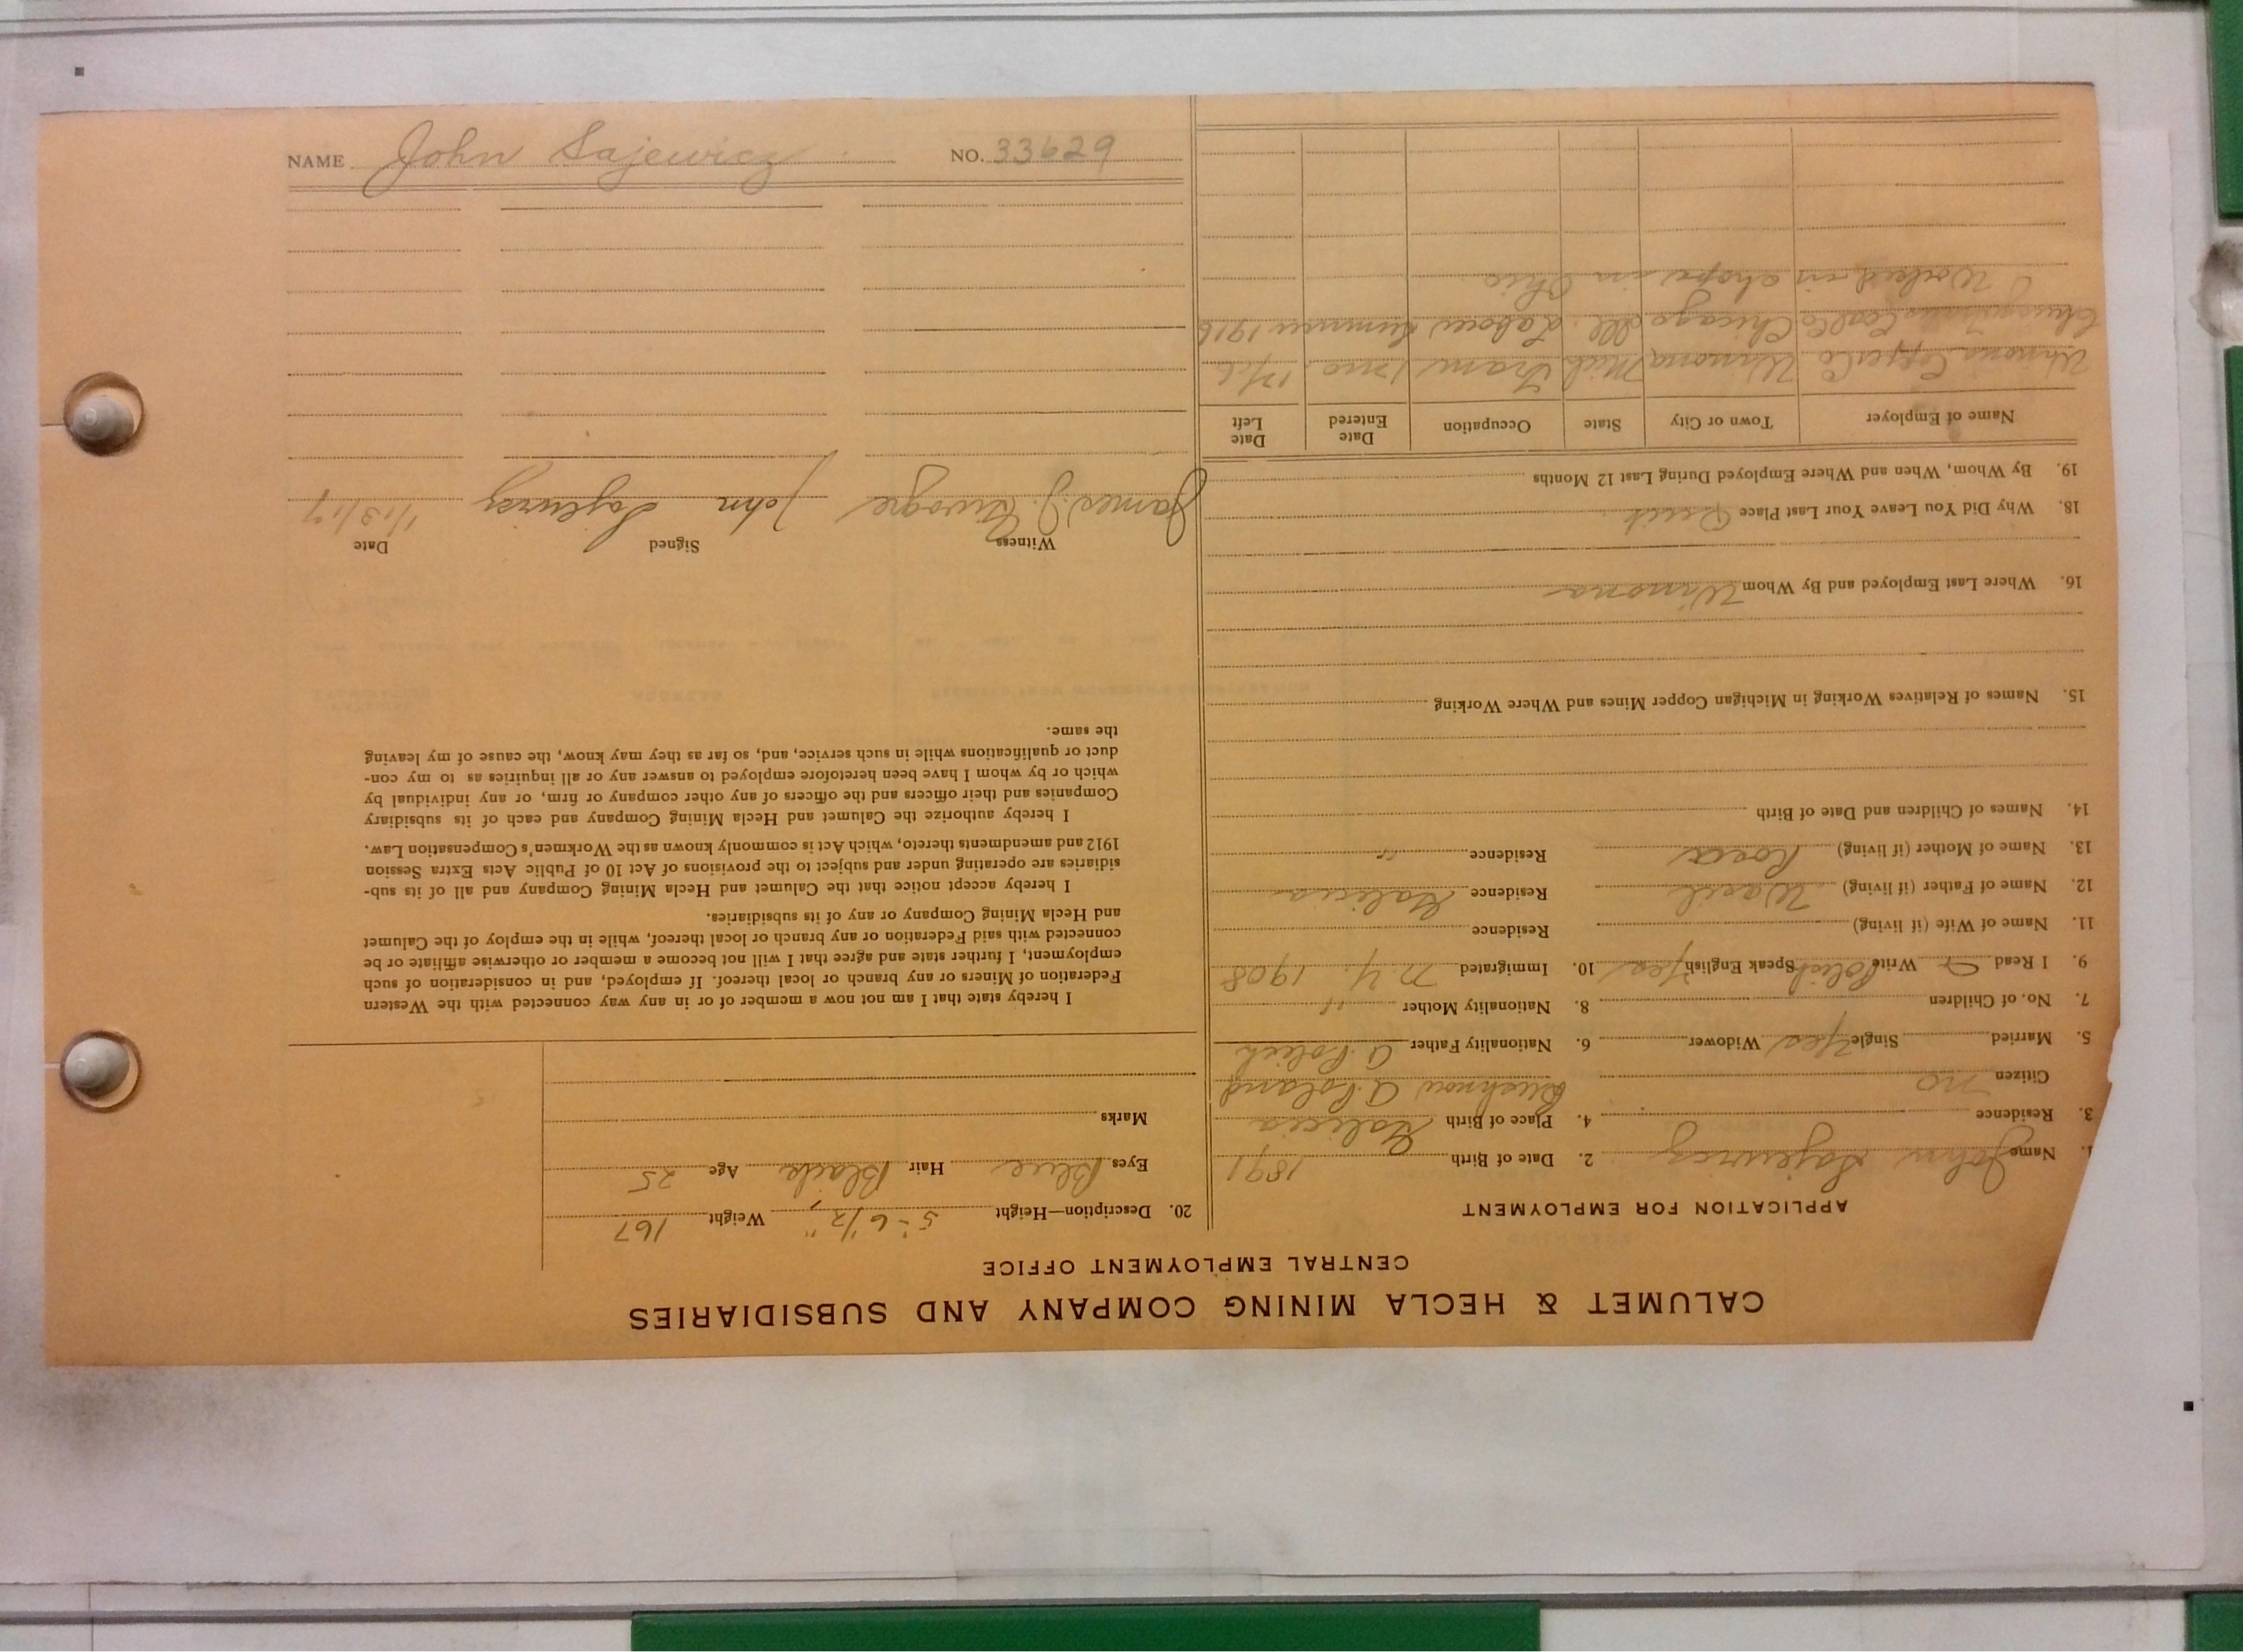 CALUMET & HECLA MINING COMPANY AND SUBSIDIARIES
CENTRAL EMPLOYMENT OFFICE
APPLICATION FOR EMPLOYMENT
1. Name John Sajewicz 2. Date of Birth 1891
3. Residence 4. Place of Birth Galicia
Citizen no A. Poland
5. Married Single Yes Widower 6. Nationality Father A. Polish
7. No. of Children 8. Nationality Mother "
9. I Read Write Polish Speak English Yes 10. Immigrated N.Y. 1908
11. Name of Wife (if living) Residence
12. Name of Father (if living) Wasil Residence Galicia
13. Name of Mother (if living) Rosa Residence "
14. Names of Children and Date of Birth
15. Names of Relatives Working in Michigan Copper Mines and Where Working
16. Where Last Employed and By Whom Winona
18. Why Did You Leave Your Last Place Quit
19. By Whom, When and Where Employed During Last 12 Months
Name of Employer Town or City State Occupation Date Entered Date Left
Winona Copper Co Winona Mich Tram 1 mo. 12/16
Coal Co Chicago Ill. Labour Summer 1916
Worked in shops in Ohio
20. Description—Height 5'-6 1/2" Weight 167
Eyes Blue Hair Black Age 25
Marks
I hereby state that I am not now a member of or in any way connected with the Western
Federation of Miners or any branch or local thereof. If employed, and in consideration of such
employment, I further state and agree that I will not become a member or otherwise affiliate or be
connected with said Federation or any branch or local thereof, while in the employ of the Calumet
and Hecla Mining Company or any of its subsidiaries.
I hereby accept notice that the Calumet and Hecla Mining Company and all of its sub-
sidiaries are operating under and subject to the provisions of Act 10 of Public Acts Extra Session
1912 and amendments thereto, which Act is commonly known as the Workmen's Compensation Law.
I hereby authorize the Calumet and Hecla Mining Company and each of its subsidiary
Companies and their officers and the officers of any other company or firm, or any individual by
which or by whom I have been heretofore employed to answer any or all inquiries as to my con-
duct or qualifications while in such service, and, so far as they may know, the cause of my leaving
the same.
Witness Signed Date
James J. John Sajewicz 1/13/17
NAME John Sajewicz NO. 33629